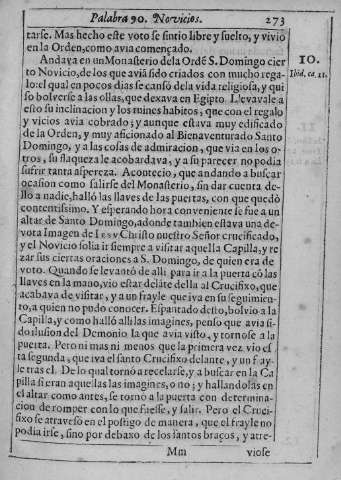 Palabra 90. Novicios. 273
tarse. Mas hecho este voto se sintio libre y suelto, y vivio
en la Orden, como avia començado.
Andava en un Monasterio de la Ordẽ S. Domingo cier
to Novicio, de los que aviã sido criados con mucho rega-
lo: el qual en pocos dias se cansó de la vida religiosa, y qui
so bolverse a las ollas, que dexava en Egipto. Llevavale a
esto su inclinacion y los ruines habitos, que con el regalo
y vicios avia cobrado; y aunque estava muy edificado
de la Orden, y muy aficionado al Bienaventurado Santo
Domingo, y a las cosas de admiracion, que via en los o-
tros, su flaqueza le acobardava, y a su parecer no podia
sufrir tanta aspereza. Acontecio, que andando a buscar
ocasion como salirse del Monasterio, sin dar cuenta de-
llo a nadie, halló las llaves de las puertas, con que quedò
contentissimo. Y esperando hora conveniente se fue a un
altar de Santo Domingo, adonde tambien estava una de-
vota Imagen de Iesu Christo nuestro Señor crucificado,
y el Novicio solia ir siempre a visitar aquella Capilla, y re
zar sus ciertas oraciones a S. Domingo, de quien era de
voto. Quando se levantó de alli para ir a la puerta cõ las
llaves en la mano, vio estar delãte della al Crucifixo, que
acabava de visitar, y a un frayle que iva en su seguimien-
to, a quien no pudo conocer. Espantado desto, bolvio a la
Capilla, y como halló alli las imagines, pensò que avia si-
do ilusion del Demonio la que avia visto, y tornose a la
puerta. Pero ni mas ni menos que la primera vez vio es
ta segunda, que iva el santo Crucifixo delante, y un fray-
le tras el. De lo qual tornó a recelarse, y a buscar en la Ca
pilla si eran aquellas las imagines, o no; y hallandolas en
el altar como antes, se tornó a la puerta con determina-
cion de romper con lo que fuesse, y salir. Pero el Cruci-
fixo se atravesó en el postigo de manera, que el frayle no
podia irse, sino por debaxo de los santos braços, y atre-
Mm viose
10.
Ibid. ca. 21.